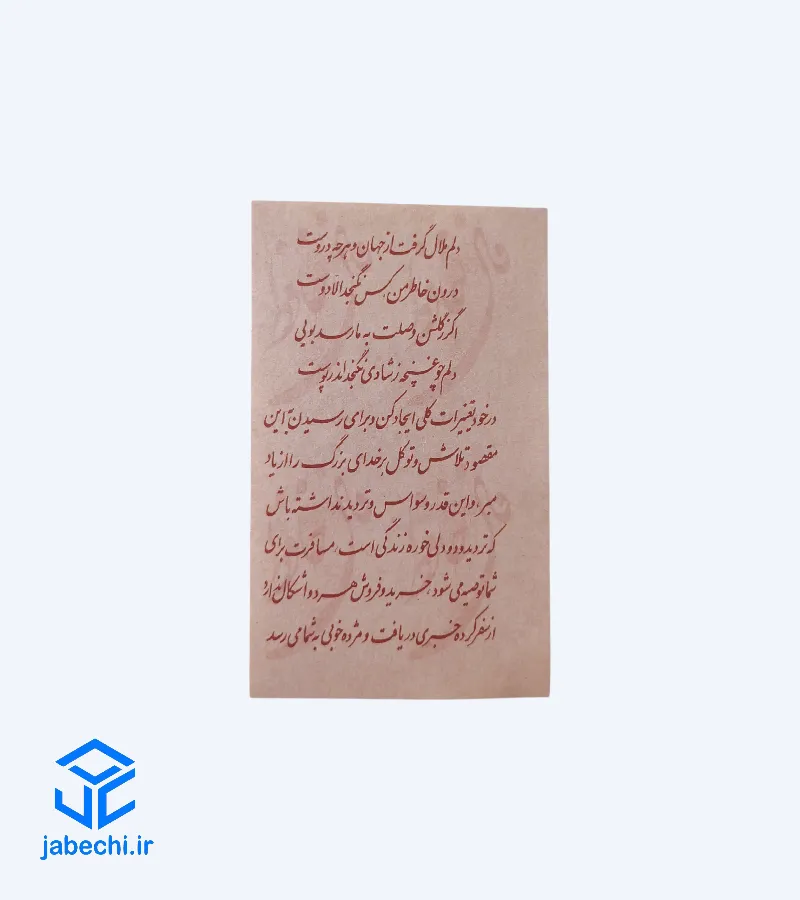 دلم ملال گرفت از جهان و هرچه در اوست
درون خاطر من، کس نگنجد الّا دوست
اگر ز گلشن وصلت به ما رسد بویی
دلم چو غنچه ز شادی نگنجد اندر پوست
در خود تغییرات کلی ایجاد کن و برای رسیدن به این
مقصود تلاش و توکل بر خدای بزرگ را از یاد
مبر، و این قدر وسواس و تردید نداشته باش
که تردید و دودلی خوره زندگی است، مسافرت برای
شما توصیه می شود، خرید و فروش هر دو اشکال ندارد
از سفر کرده خبری دریافت و مژده خوبی به شما می رسد
jabechi.ir